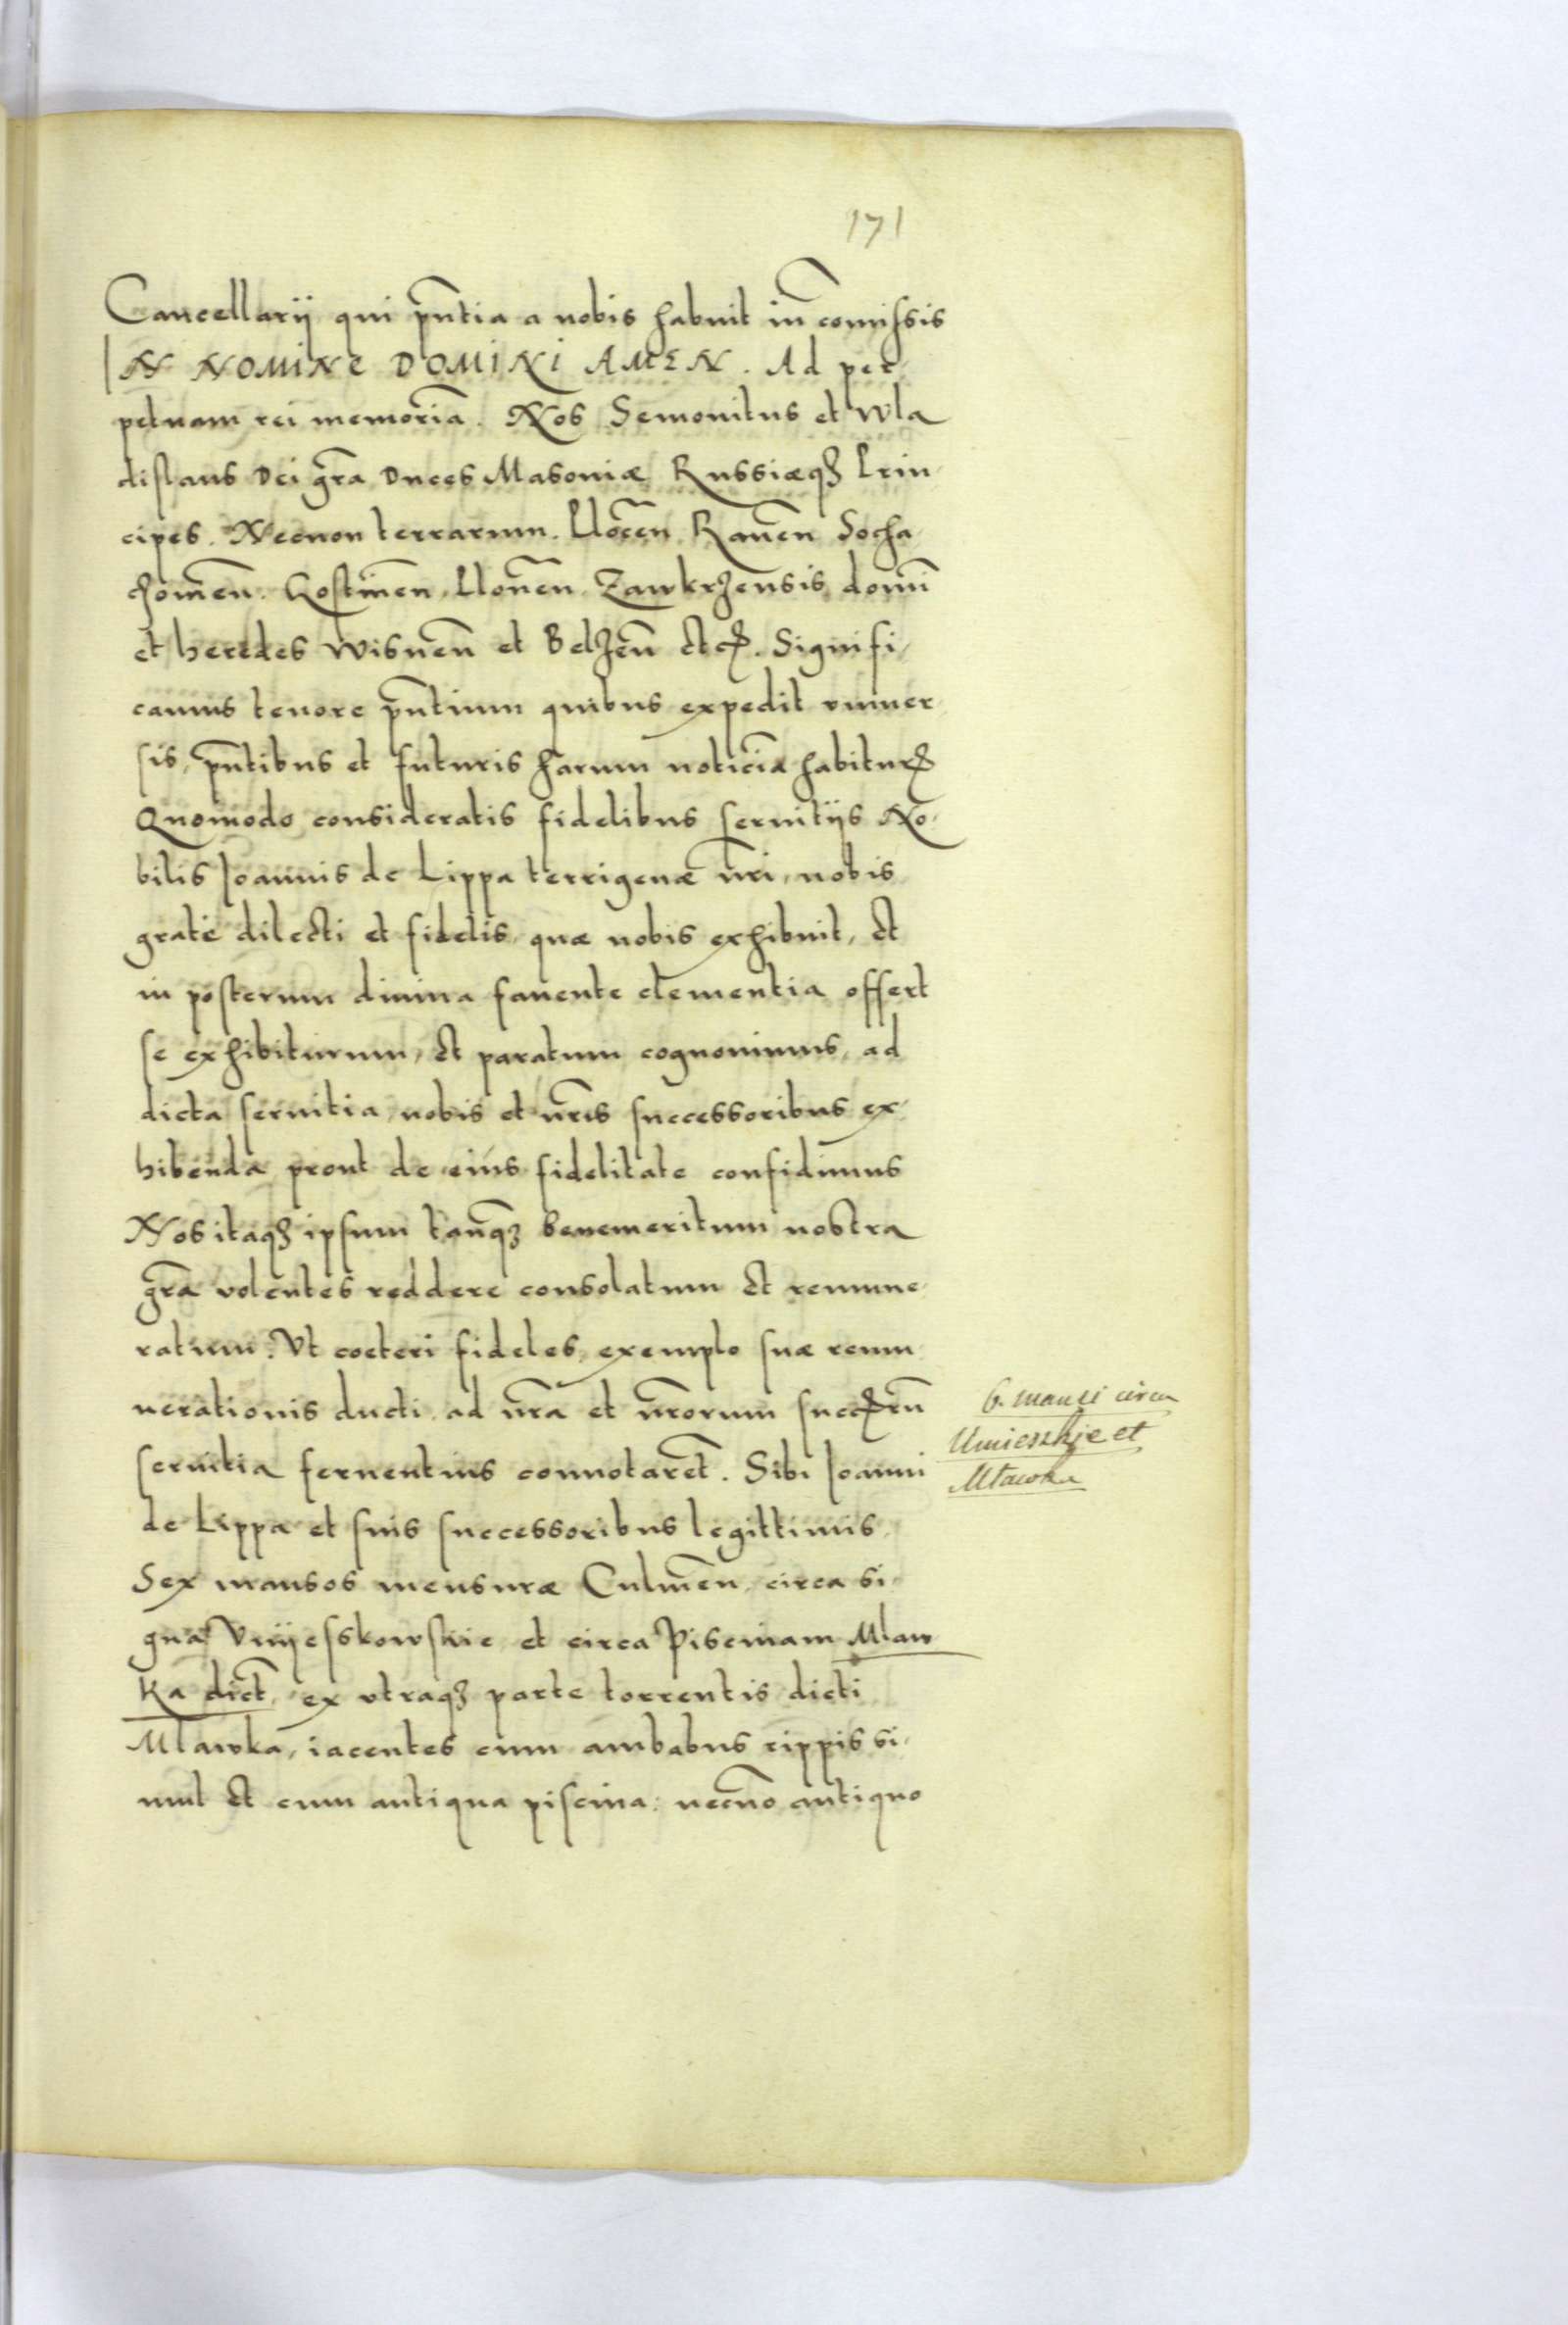 171
Cancellarij qui pn̄tia a nobis habuit in com̄issis
IN NOMINE DOMINI AMEN. Ad per
petuam rei memoriā. Nos Semouitus et Wla
dislaus Dei gr̄a Duces Masoniæ Russiæqꝫ Prin
cipes. Necnon terrarum. Plocen̄ Raven̄ Socha
chovien̄. Gostinen̄, Plonen̄ Zawkrzensis domi̅
et heredes Wisnen̄ et Belzen̄ etc. Signifi
camus tenore pn̄tium quibus expedit vniuer
sis, pn̄tibus et futuris harum noticiā habitur̄
Quomodo consideratis fidelibus seruitijs No
bilis Joannis de Lippa terrigenæ nr̄i, nobis
gratè dilecti et fidelis, quæ nobis exhibuit, et
in posterum diuina fauente clementia offert
se exhibiturum, et paratum cognouimus, ad
dicta seruitia nobis et nr̄is successoribus ex
hibenda prout de eius fidelitate confidimus
Nos itaqꝫ ipsum tanqꝫ benemeritum nostra
gr̄a volentes reddere consolatum et remune
ratum. Vt coeteri fideles, exemplo suæ remu
nerationis ducti ad nr̄a et nr̄orum succ̄rum̄
seruitia feruentius connotaret̄. Sibi Joanni
de Lippa et suis successoribus legittimis
Sex mansos mensuræ Culmen̄ circa si
gna Vnijesskowskie et circa Piscinam Mlaw
ka dict̄, ex vtraqꝫ parte torrentis dicti
Mlawka, iacentes cum ambabus rippis si
mul et cum antiqua piscina: necno̅ antiquo
6. mansi circa
Umieszkje et
Mławka